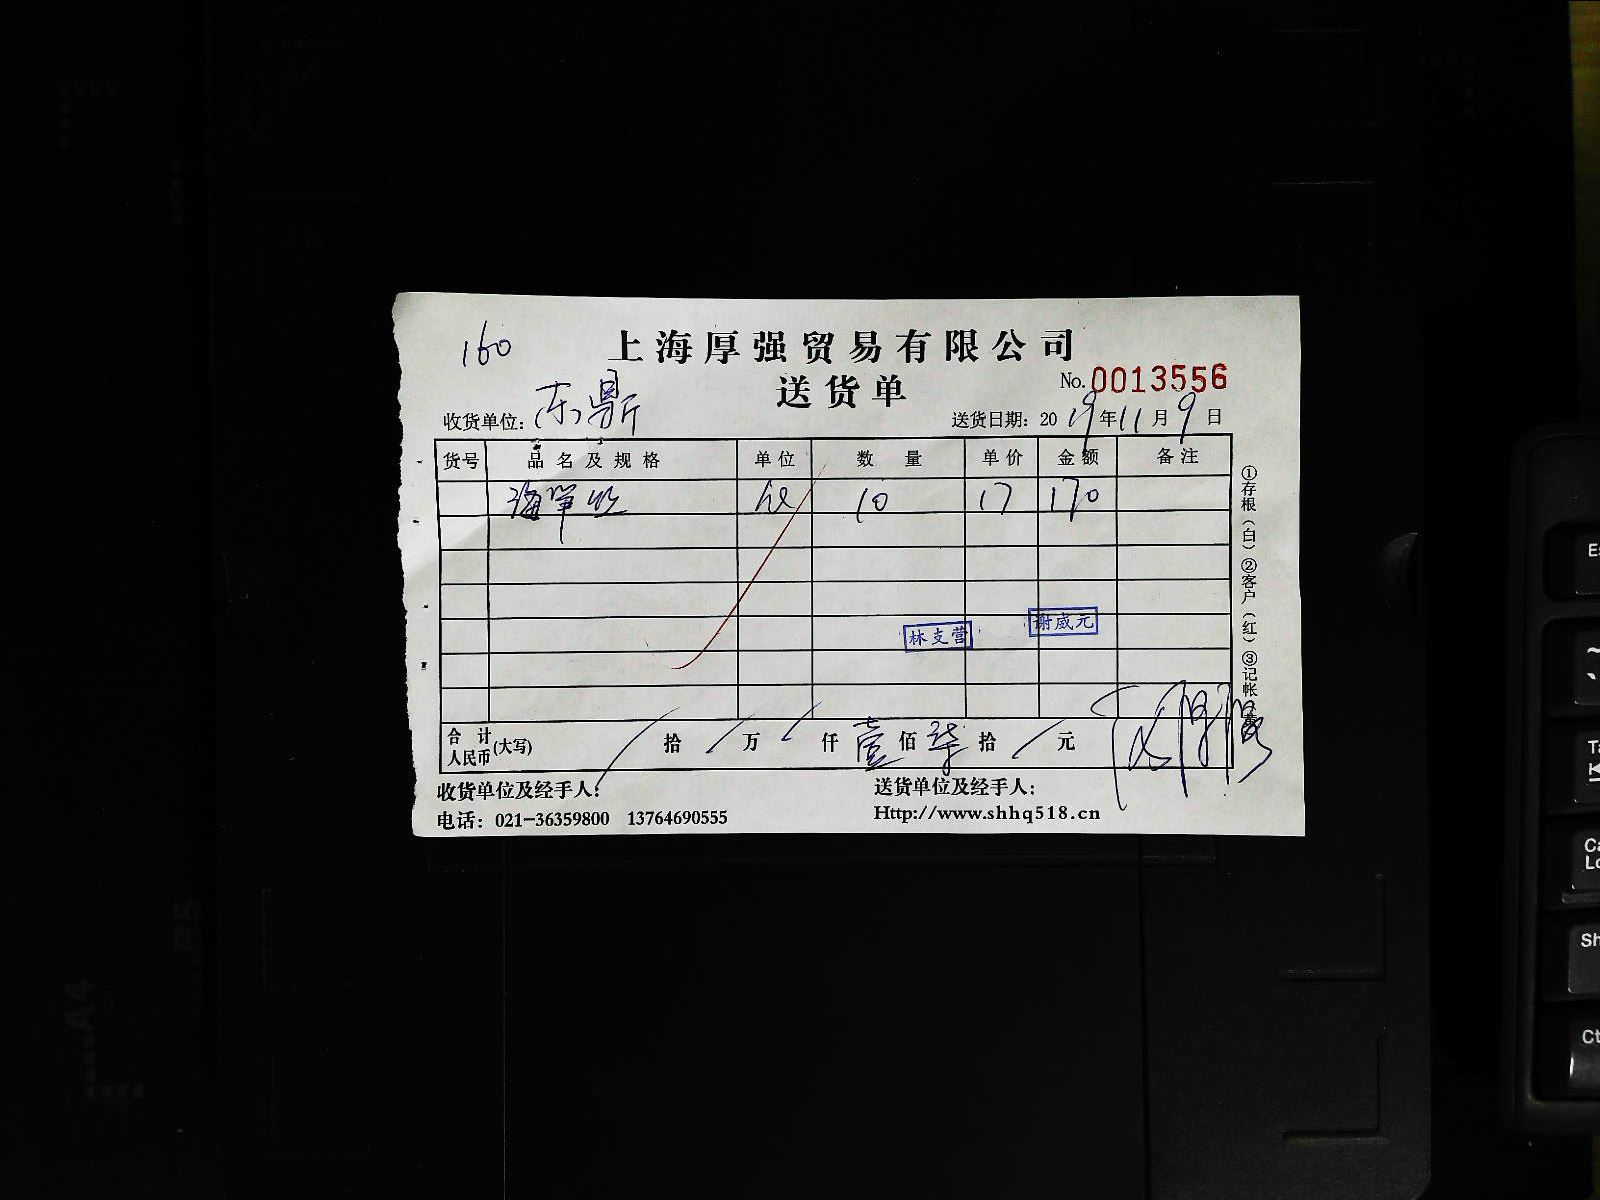 160
上海厚强贸易有限公司
送货单
No.0013556
收货单位: 东鼎
送货日期: 2019年11月9日
货号 品名及规格 单位 数量 单价 金额 备注
海笋丝 10 17 170
林支营 谢威元
合计人民币(大写) / 拾 / 万 / 仟 壹 佰 柒 拾 / 元
收货单位及经手人:
送货单位及经手人:
电话: 021-36359800 13764690555
Http://www.shhq518.cn
①存根(白)②客户(红)③记帐
A4
B5